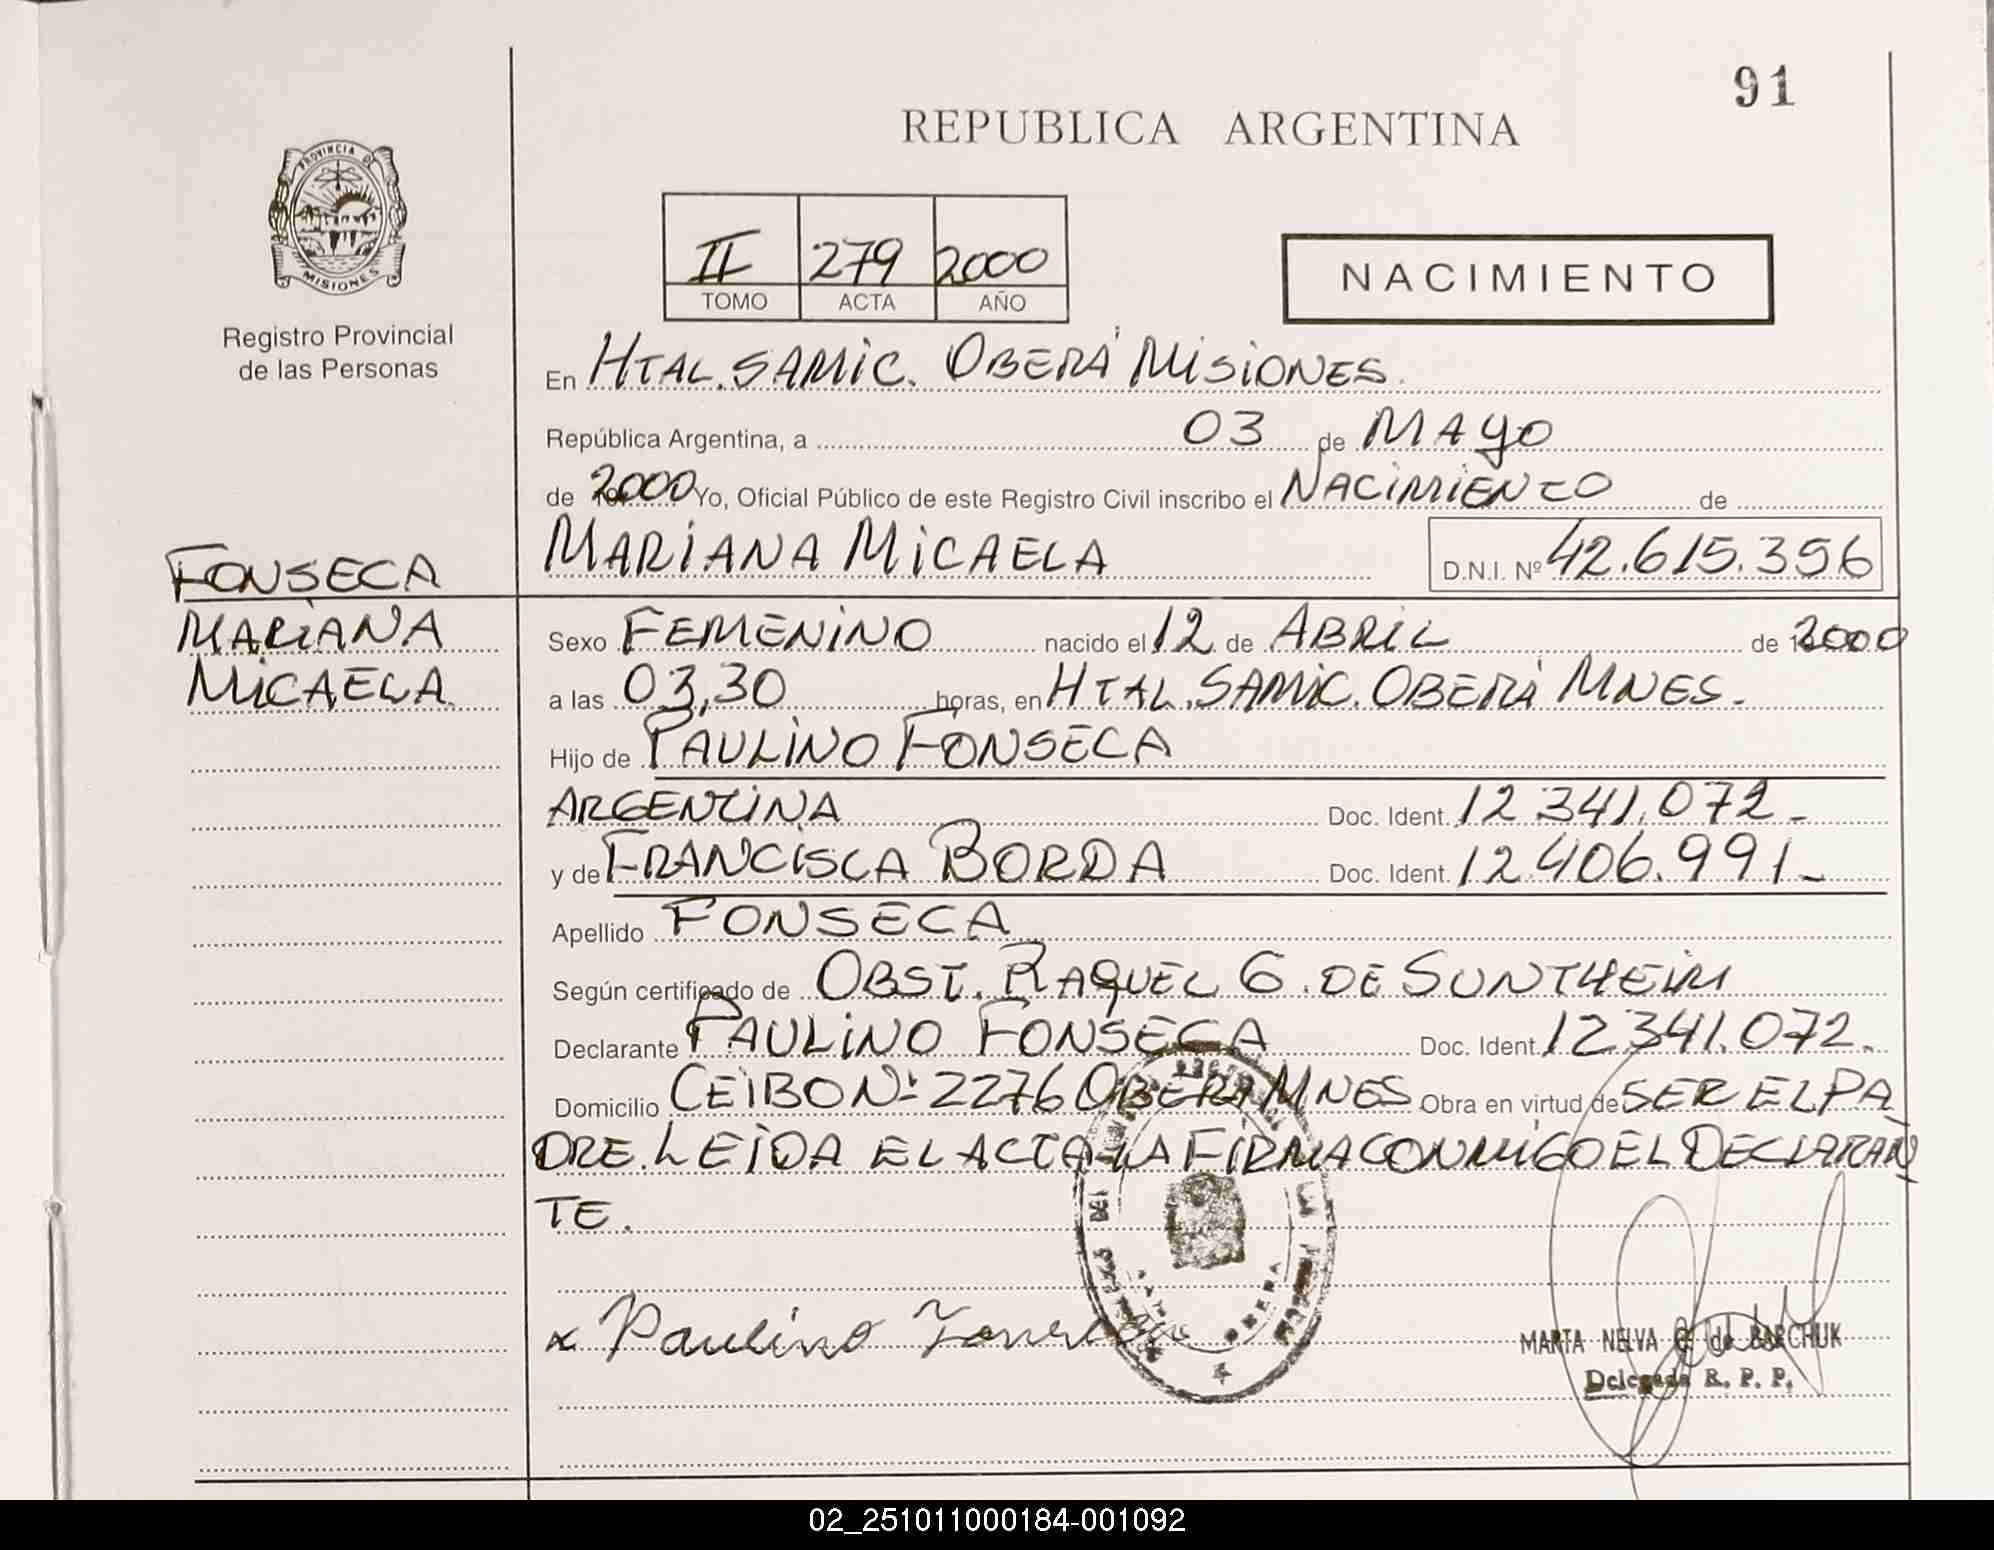 91
REPUBLICA ARGENTINA
PROVINCIA DE
MISIONES
Registro Provincial
de las Personas
II 279 2000
TOMO ACTA AÑO
NACIMIENTO
En HTAL. SAMIC. OBERÁ MISIONES.
República Argentina, a 03 de MAYO
de 2000 Yo, Oficial Público de este Registro Civil inscribo el NACIMIENTO de
MARIANA MICAELA D.N.I. Nº 42.615.356
FONSECA
MARIANA
MICAELA.
Sexo FEMENINO nacido el 12 de ABRIL de 2000
a las 03,30 horas, en HTAL. SAMIC. OBERÁ MNES.
Hijo de PAULINO FONSECA
ARGENTINA Doc. Ident. 12.341.072.-
y de FRANCISCA BORDA Doc. Ident. 12.406.991.-
Apellido FONSECA
Según certificado de OBST. RAQUEL G. DE SUNTHEIM
Declarante PAULINO FONSECA Doc. Ident. 12.341.072.
Domicilio CEIBO Nº 2276 OBERA MNES Obra en virtud de SER EL PA
DRE. LEIDA EL ACTA LA FIRMA CONMIGO EL DECLARAN
TE.
x Paulino Fonseca
OBERA
MARTA NELVA G. de BARCHUK
Delegada R. P. P.
02_251011000184-001092